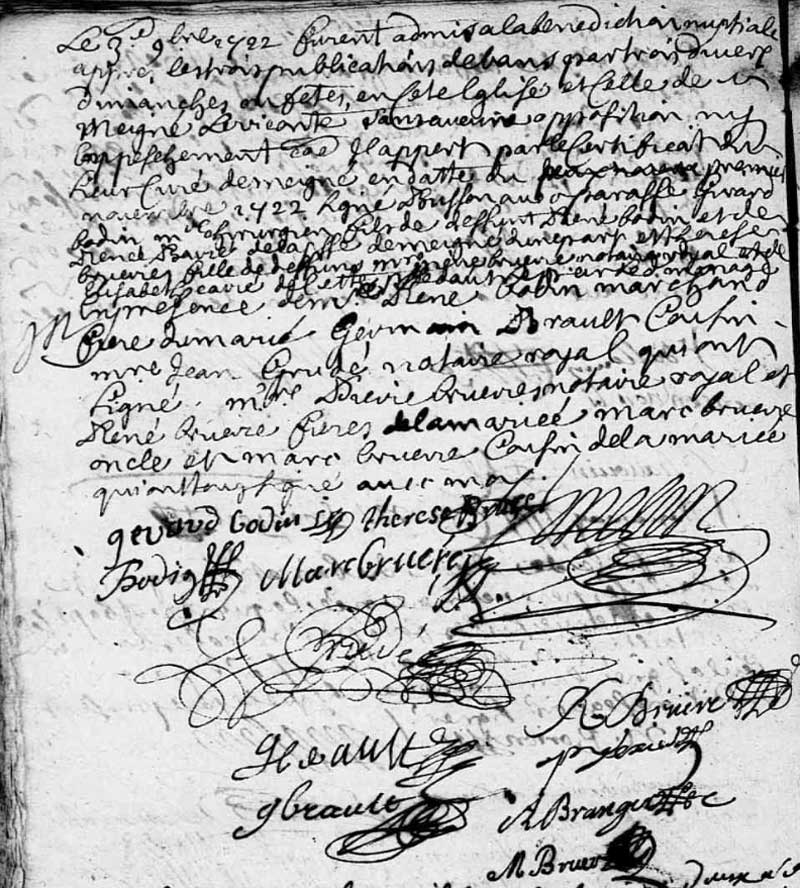 Le 3.e 9bre 1722 furent admis a la benediction nuptiale
appres les trois publications de bans par trois divers
dimanches ou fetes, en cete Eglise et Celle de
Meigné Le vicomte sans aucune opposition ny
Empeschement comme Il appert par le Certificat du
sieur Curé de meigné en datte du premier
novembre 1722 signé Busson avec paraffe Girard
bodin me chirurgien fils de deffunt René bodin et de
Renée de la psse de meigné d'une part et therese
bruere fille de deffunt mre bruere notaire royal et de
Elisabeth de cette psse d'autre part
En presence de mre René bodin marchand
frere du marié Germain Brault Cousin
mre Jean Crudé notaire royal qui ont
signé. mtre bruere notaire royal et
René bruere freres de la mariée marc bruere
oncle et marc bruere Cousin de la mariée
qui ont tous signé avec moy.
gerard bodin therese Bruere
Bodin Marc bruere
Crudé
R Bruere
G brault
gbrault
M Bruere